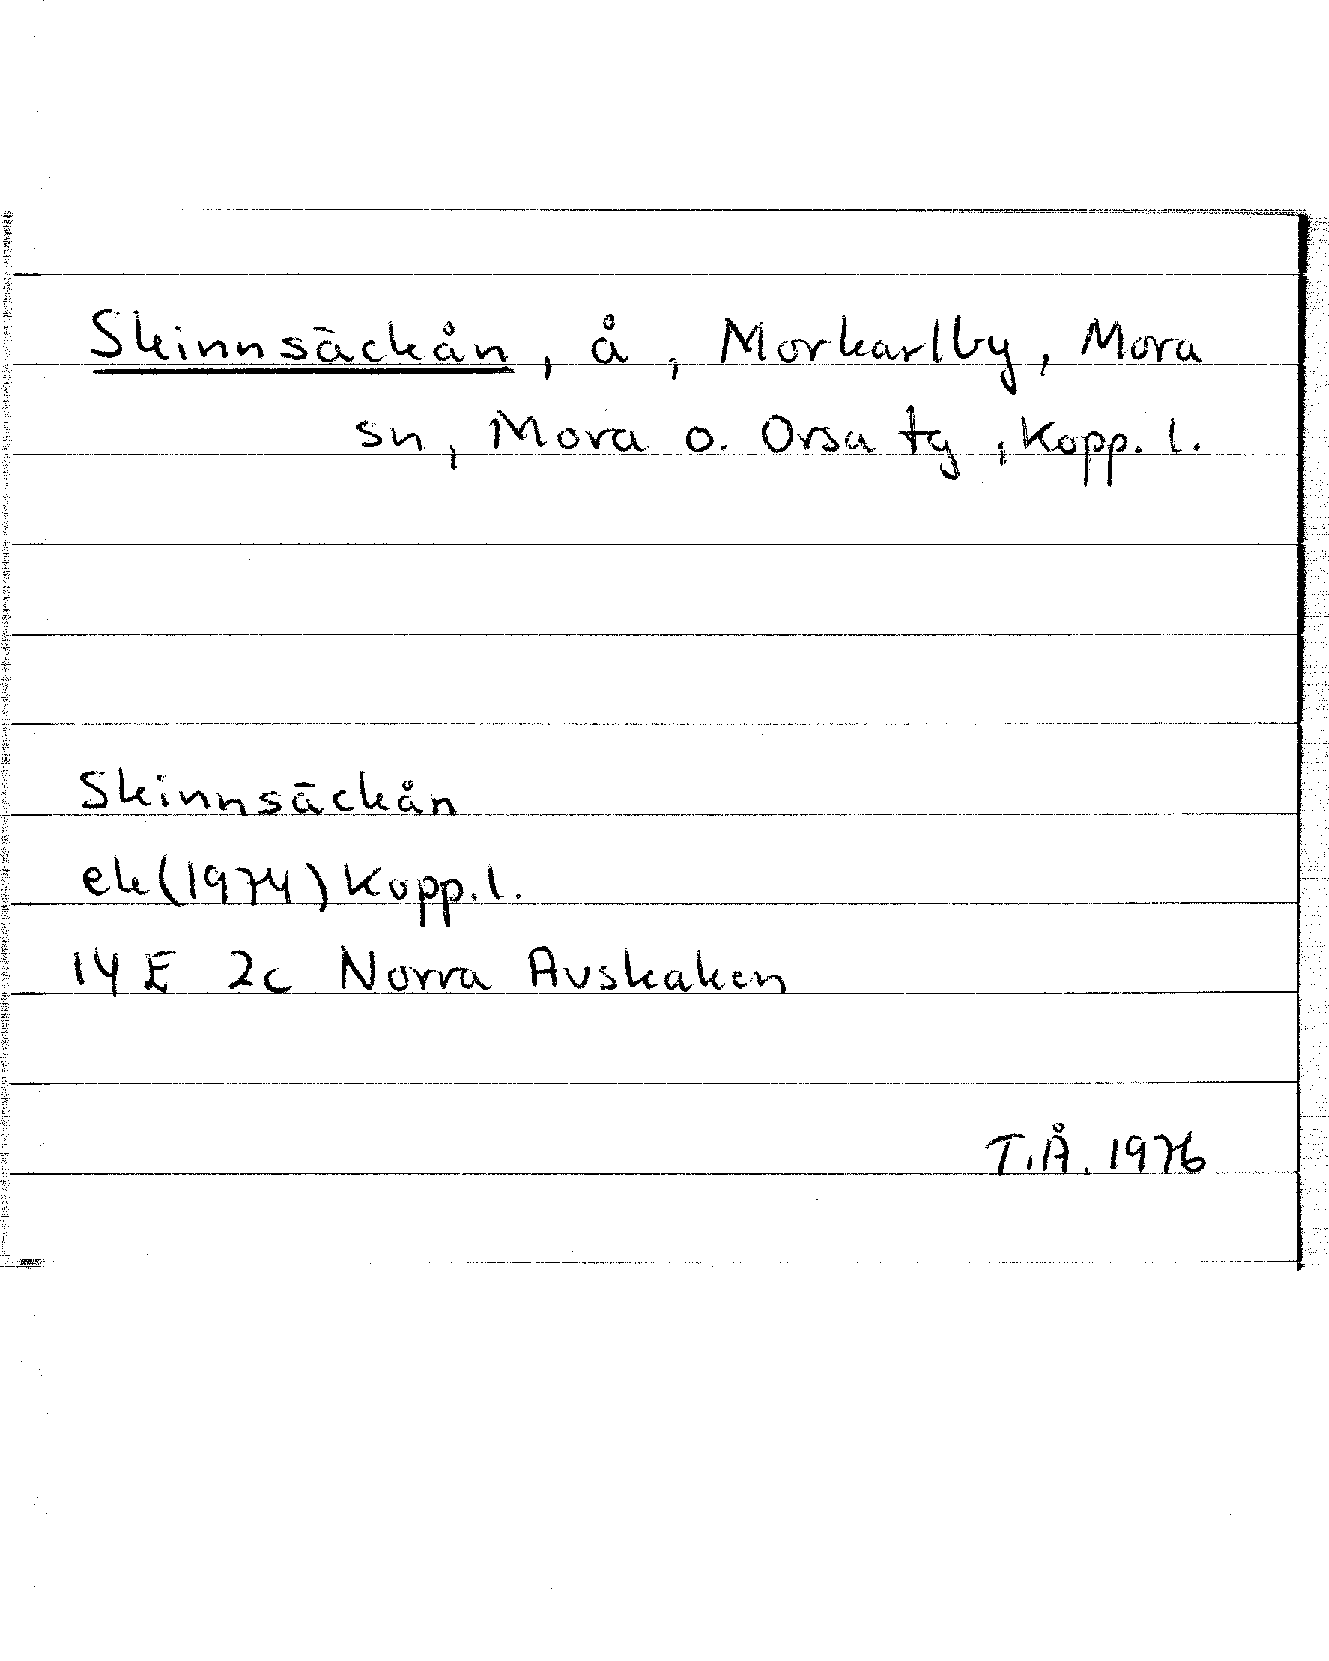 Skinnsäckån, å, Morkarlby, Mora
sn, Mora o. Orsa tg, Kopp. l.
Skinnsäckån
ek(1974) Kopp. l.
14 E 2c Norra Avskaken
T.Å. 1976